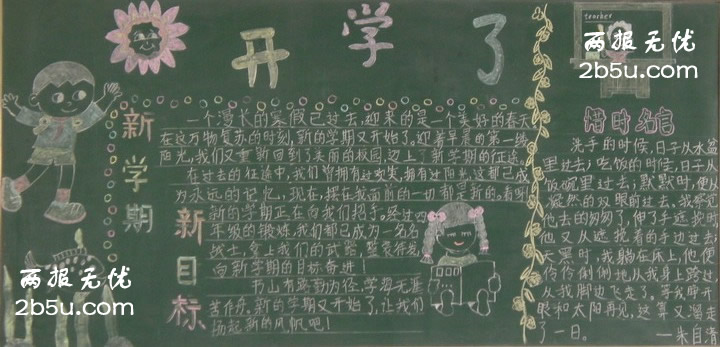 开学了
新学期
新目标
一个漫长的寒假已过去,迎来的是一个美好的春天
在这万物复苏的时刻,新的学期又开始了。迎着早晨的第一缕
阳光,我们又重新回到了美丽的校园,迈上了新学期的征途。
在过去的征途中,我们曾拥有过失,拥有过阳光,这都已成
为永远的记忆,现在,摆在我面前的一切都是新的。看啊!
新的学期正在向我们招手。经过
年级的锻炼,我们都已成为一名名
战士,拿上我们的武器,整装待发
向新学期的目标奋进!
书山有路勤为径,学海无涯
苦作舟。新的学期又开始了,让我们
扬起新的风帆吧!
teacher
惜时名言
洗手的时候,日子从水盆
里过去;吃饭的时候,日子从
饭碗里过去;默默时,便从
凝然的双眼前过去。我察觉
他去的匆匆了,伸了手遮挽时
他又从遮挽着的手边过去;
天黑时,我躺在床上,他便
伶伶俐俐地从我身上跨过
从我脚边飞走了。等我睁开
眼和太阳再见,这算又溜走
了一日。 —朱自清
两报无优
2b5u.com
两报无优
2b5u.com